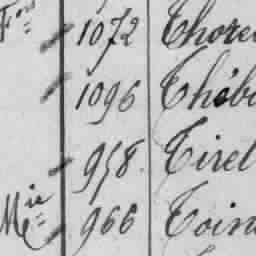 Fois 1072 Thore
1096 Théb
958. Tirel
Mie 966 Toin